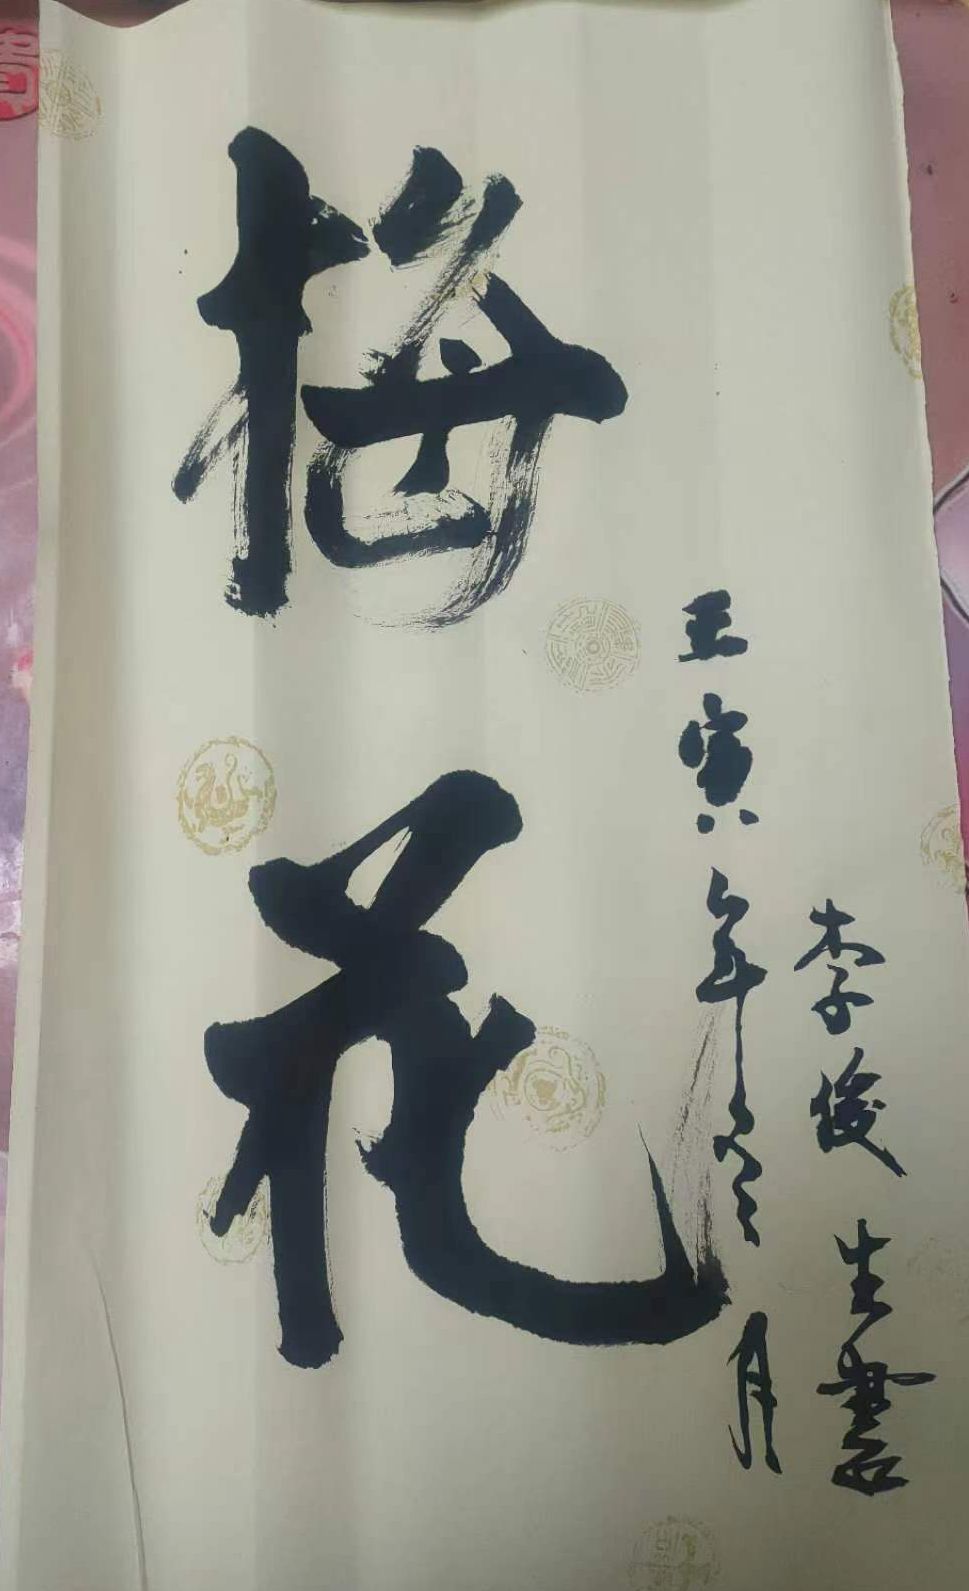 梅花
壬寅年冬月
李俊生書